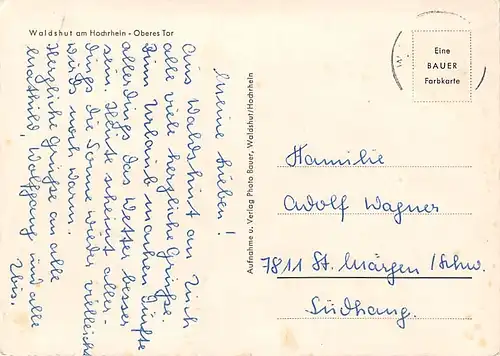 Waldshut am Hochrhein - Oberes Tor
Meine Lieben!
Aus Waldshut an Euch
alle viel herzliche Grüsse.
Zum Urlaub machen dürfte
allerdings das Wetter besser
sein. Heute scheint aller-
dings die Sonne wieder, vielleicht
wird's noch warm.
Herzliche Grüsse an alle
Mathild, Wolfgang und alle
Aufnahme u. Verlag Photo Bauer, Waldshut/Hochrhein
Eine
BAUER
Farbkarte
Familie
Adolf Wagner
7811 St. Märgen/Schw.
Südhang.